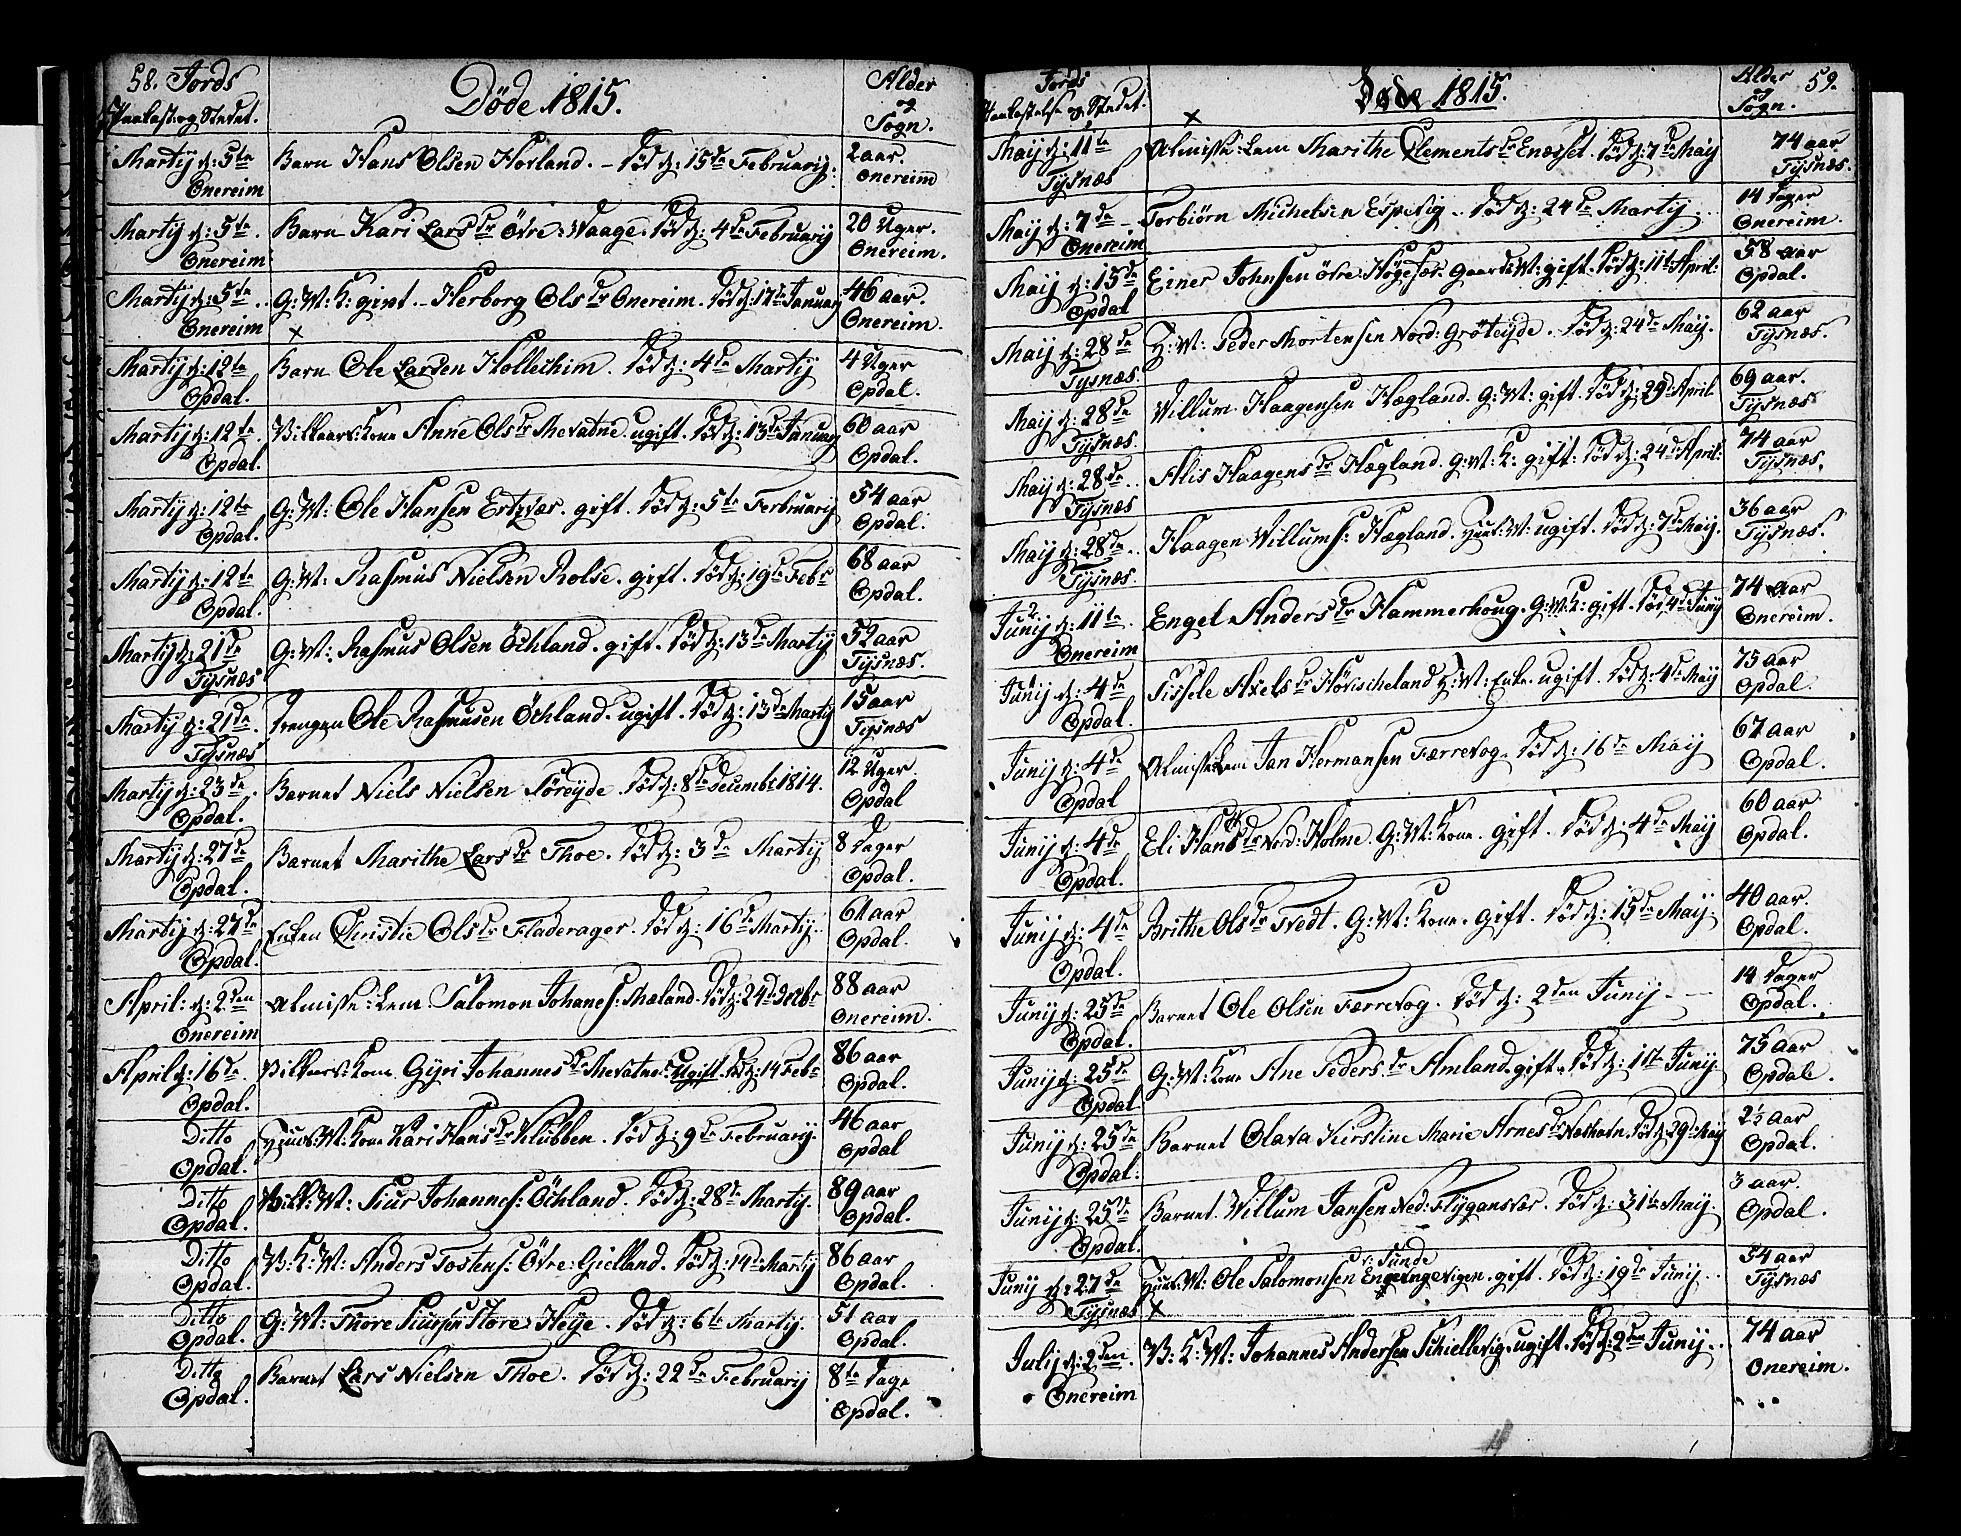 58. Jords
Paakast: og Stedet.
Døde 1815.
Alder
og
Sogn.
Martij d: 5te
Onereim
Barn Hans Olsen Hovland. – Død d: 15de Februarij:
2 aar.
Onereim
Martij d: 5te.
Onereim
Barn Kari Larsdr Övre: Waage. Død d: 4de Februarij
20 Uger.
Onereim.
Martij d: 5te.
Onereim
G: W: K: givt – Herborg Olsdr Onereim. Død d: 17de Januarij
46 aar.
Onereim.
×
Martij d: 12te
Opdal.
Barn Ole Larsen Hollechim. Død d: 4de Martij
4 Uger
Opdal.
Martij d: 12te.
Opdal.
Vilkaars: Kone Anne Olsdr Mevatne. ugift. Død d: 13de Januarij
60 aar
Opdal.
Martij d: 12te
Opdal.
G: W: Ole Hansen Ertzvær. gift. Død d: 5te Ferbruarij
54 aar
Opdal.
Martij d: 12te
Opdal.
G: W: Rasmus Nielsen Rolse. gift. Død d: 19de Febr
68 aar
Opdal.
Martij d: 21de
Tysnæs
G: W: Rasmus Olsen Öchland. gift. Død d: 13de Martij
52 aar
Tysnæs.
Martij d: 21de.
Tysnæs
Drengen Ole Rasmusen Öchland. ugift. Død d: 13de Martij
15 aar
Tysnæs
Martij d: 23de.
Opdal.
Barnet Niels Nielsen Söreyde. Død d: 8de Decembr 1814.
12 Uger
Opdal
Martij d: 27de
Opdal.
Barnet Marithe Larsdr Thoe. Død d: 3de Martij
8 Dager
Opdal.
Martij d: 27de
Opdal.
Enken Christie Olsdr Fladerager. Død d: 16de Martij.
61 aar
Opdal.
April: d: 2den
Onereim
Almisse: Lem Salomon Johanes: Mæland. Død d: 24de Decbr
88 aar
Onereim.
April d: 16de.
Opdal.
Vilkaars: Kone Gyri Johannesdr Mevatne. Ugift. Død d: 14 Febr
86 aar
Opdal.
Ditto
Opdal.
Huus: W: Kone Kari Hansdr Klubben. Død d: 9de Februarij.
46 aar
Opdal
Ditto
Opdal.
Vilk: W: Siur Johannes: Öchland. Død d: 28de Martij.
89 aar
Opdal.
Ditto
Opdal.
V: K: W: Anders Tostens: Övre: Gielland. Død d: 14de Martij
86 aar
Opdal.
Ditto
Opdal.
G: W: Thore Siursen Store: Heye. Død d: 6te Martij.
51 aar
Opdal.
Ditto
Opdal.
Barnet Lars Nielsen Thoe. Død d: 22de Februarij
8te Dage
Opdal.
Jords
Paakastelse og Stedet.
Døde 1815.
Alder
og
Sogn.
59.
×
Maij d: 11te
Tysnæs
Almisse: Lem Marithe Clementsdr Enæsset. Død d: 7de Maij
74 aar
Tysnæs.
Maij d: 7de
Onereim
Torbiörn Michelsen Espevig. Død d: 24de Martij.
14 Dager
Onereim.
Maij d: 15de
Opdal
Einer Johnsen övre: Högesæt. Gaards W: gift. Død d: 11te April:
58 aar
Opdal.
Maij d: 28de
Tysnæs.
H: W: Peder Mortensen Nord: Gröteyde. Død d: 24de Maij.
62 aar
Tysnæs.
Maij d: 28de
Tysnæs.
Willum Haagensen Hægland. G: W: gift. Død d: 29de April
69 aar.
Tysnæs.
Maij d: 28de.
Tysnæs
Alis Haagensdr Hægland. G: W: K: gift. Død d: 24de April:
74 aar
Tysnæs.
Maij d: 28de.
Tysnæs.
Haagen Willums: Hægland. Huus: W: ugift. Død d: 7de Maij.
36 aar
Tysnæs.
2
Junij d: 11te.
Onereim
Engel Andersdr Hammerhoug. G: W: K: gift. Død 4de Junij
74 aar
Onereim.
1
Junij d: 4de
Opdal.
Sissele Axelsdr Hövischeland H: W: Enke. ugift. Død d: 4de Maij
75 aar
Opdal.
Junij d: 4de
Opdal
Almisselem Jan Hermansen Færrevog. Død d: 16de Maij
67 aar
Opdal.
Junij d: 4de
Opdal.
Eli Hansdr Nerd: Holme. G: W: Kone. gift. Død d: 4de Maij
60 aar
Opdal.
Junij d: 4de
Opdal.
Brithe Olsdr Tvedt. G: W: Kone. gift. Død d: 15de Maij
40 aar.
Opdal.
Junij d: 25de
Opdal.
Barnet Ole Olsen Færrevog. Død d: 2den Junij
14 Dager
Opdal.
Junij d: 25de
Opdal
G: W: Kone Ane Pedersdr Amland. gift. Død d: 1ste Junij.
75 aar
Opdale.
Junij d: 25de
Opdal:
Barnet Olava Kirstine Marie Arnesdr Neshavn. Død d: 29de Maij
2½ aar
Opdal.
Junij d: 25de
Opdal.
Barnet Willum Jansen Ned: Flygansvær. Død d: 31te Maij.
3 aar.
Opdal.
Junij d: 27de
Tysnæs
Huus W: Ole Salomonsen Engevigen. gift. Død d: 19de Junij.
54 aar
Tysnæs
×
Julij d: 2den.
Onereim
V: K: W: Johannes Andersen Schiellevig. ugift. Død d: 2den Junij.
74 aar
Onereim.